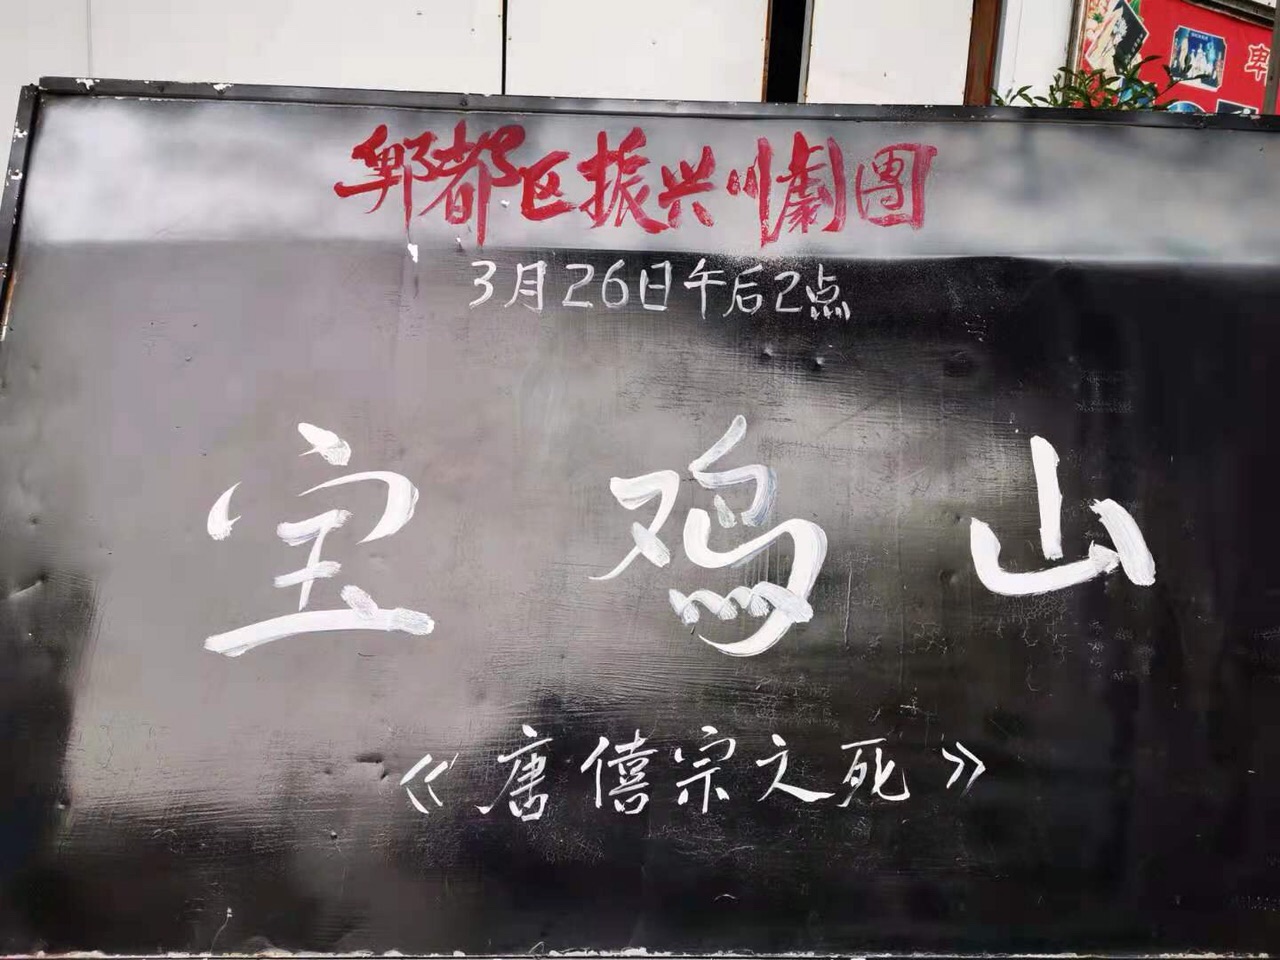 郫都区振兴川劇團
3月26日午后2点
宝鸡山
《唐僖宗之死》